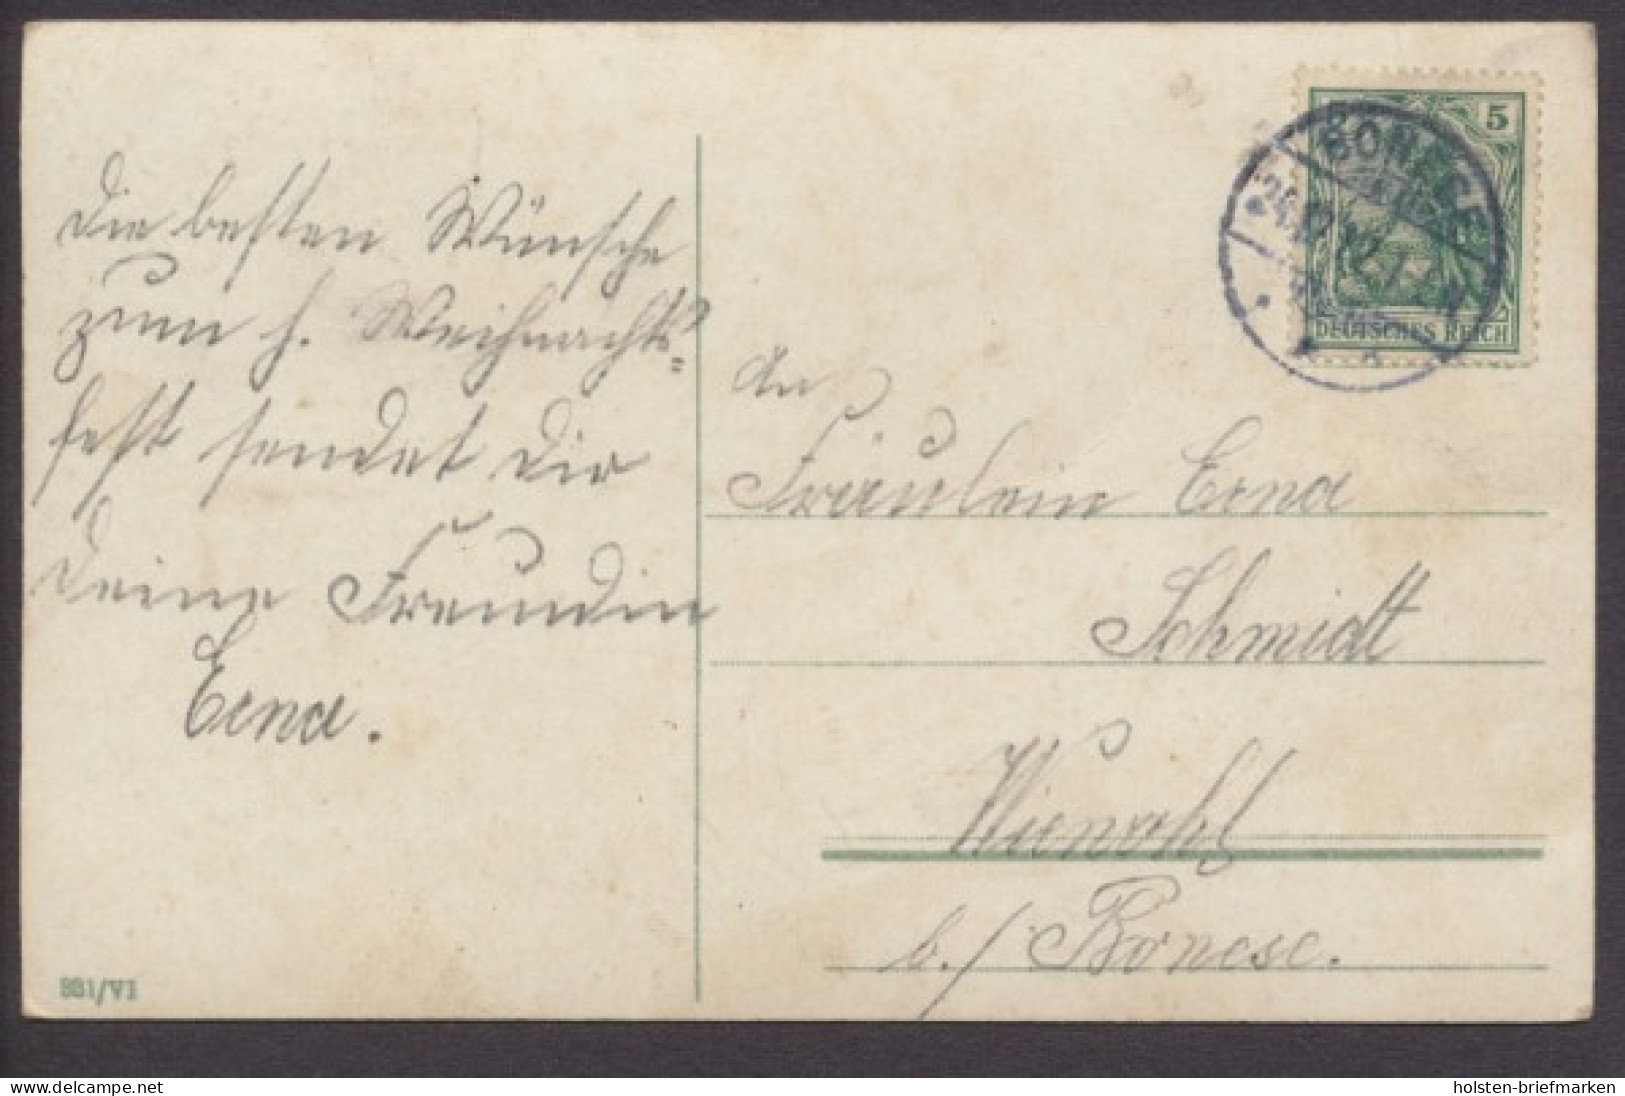 Die besten Wünsche
zum h. Weihnachts=
fest sendet Dir
Deine Freundin
Erna.
331/VI
5
BONESE
24.12.12.
DEUTSCHES REICH
An
Fräulein Erna
Schmidt
Wienohl
b./ Bonese.
delcampe.net
holsten-briefmarken